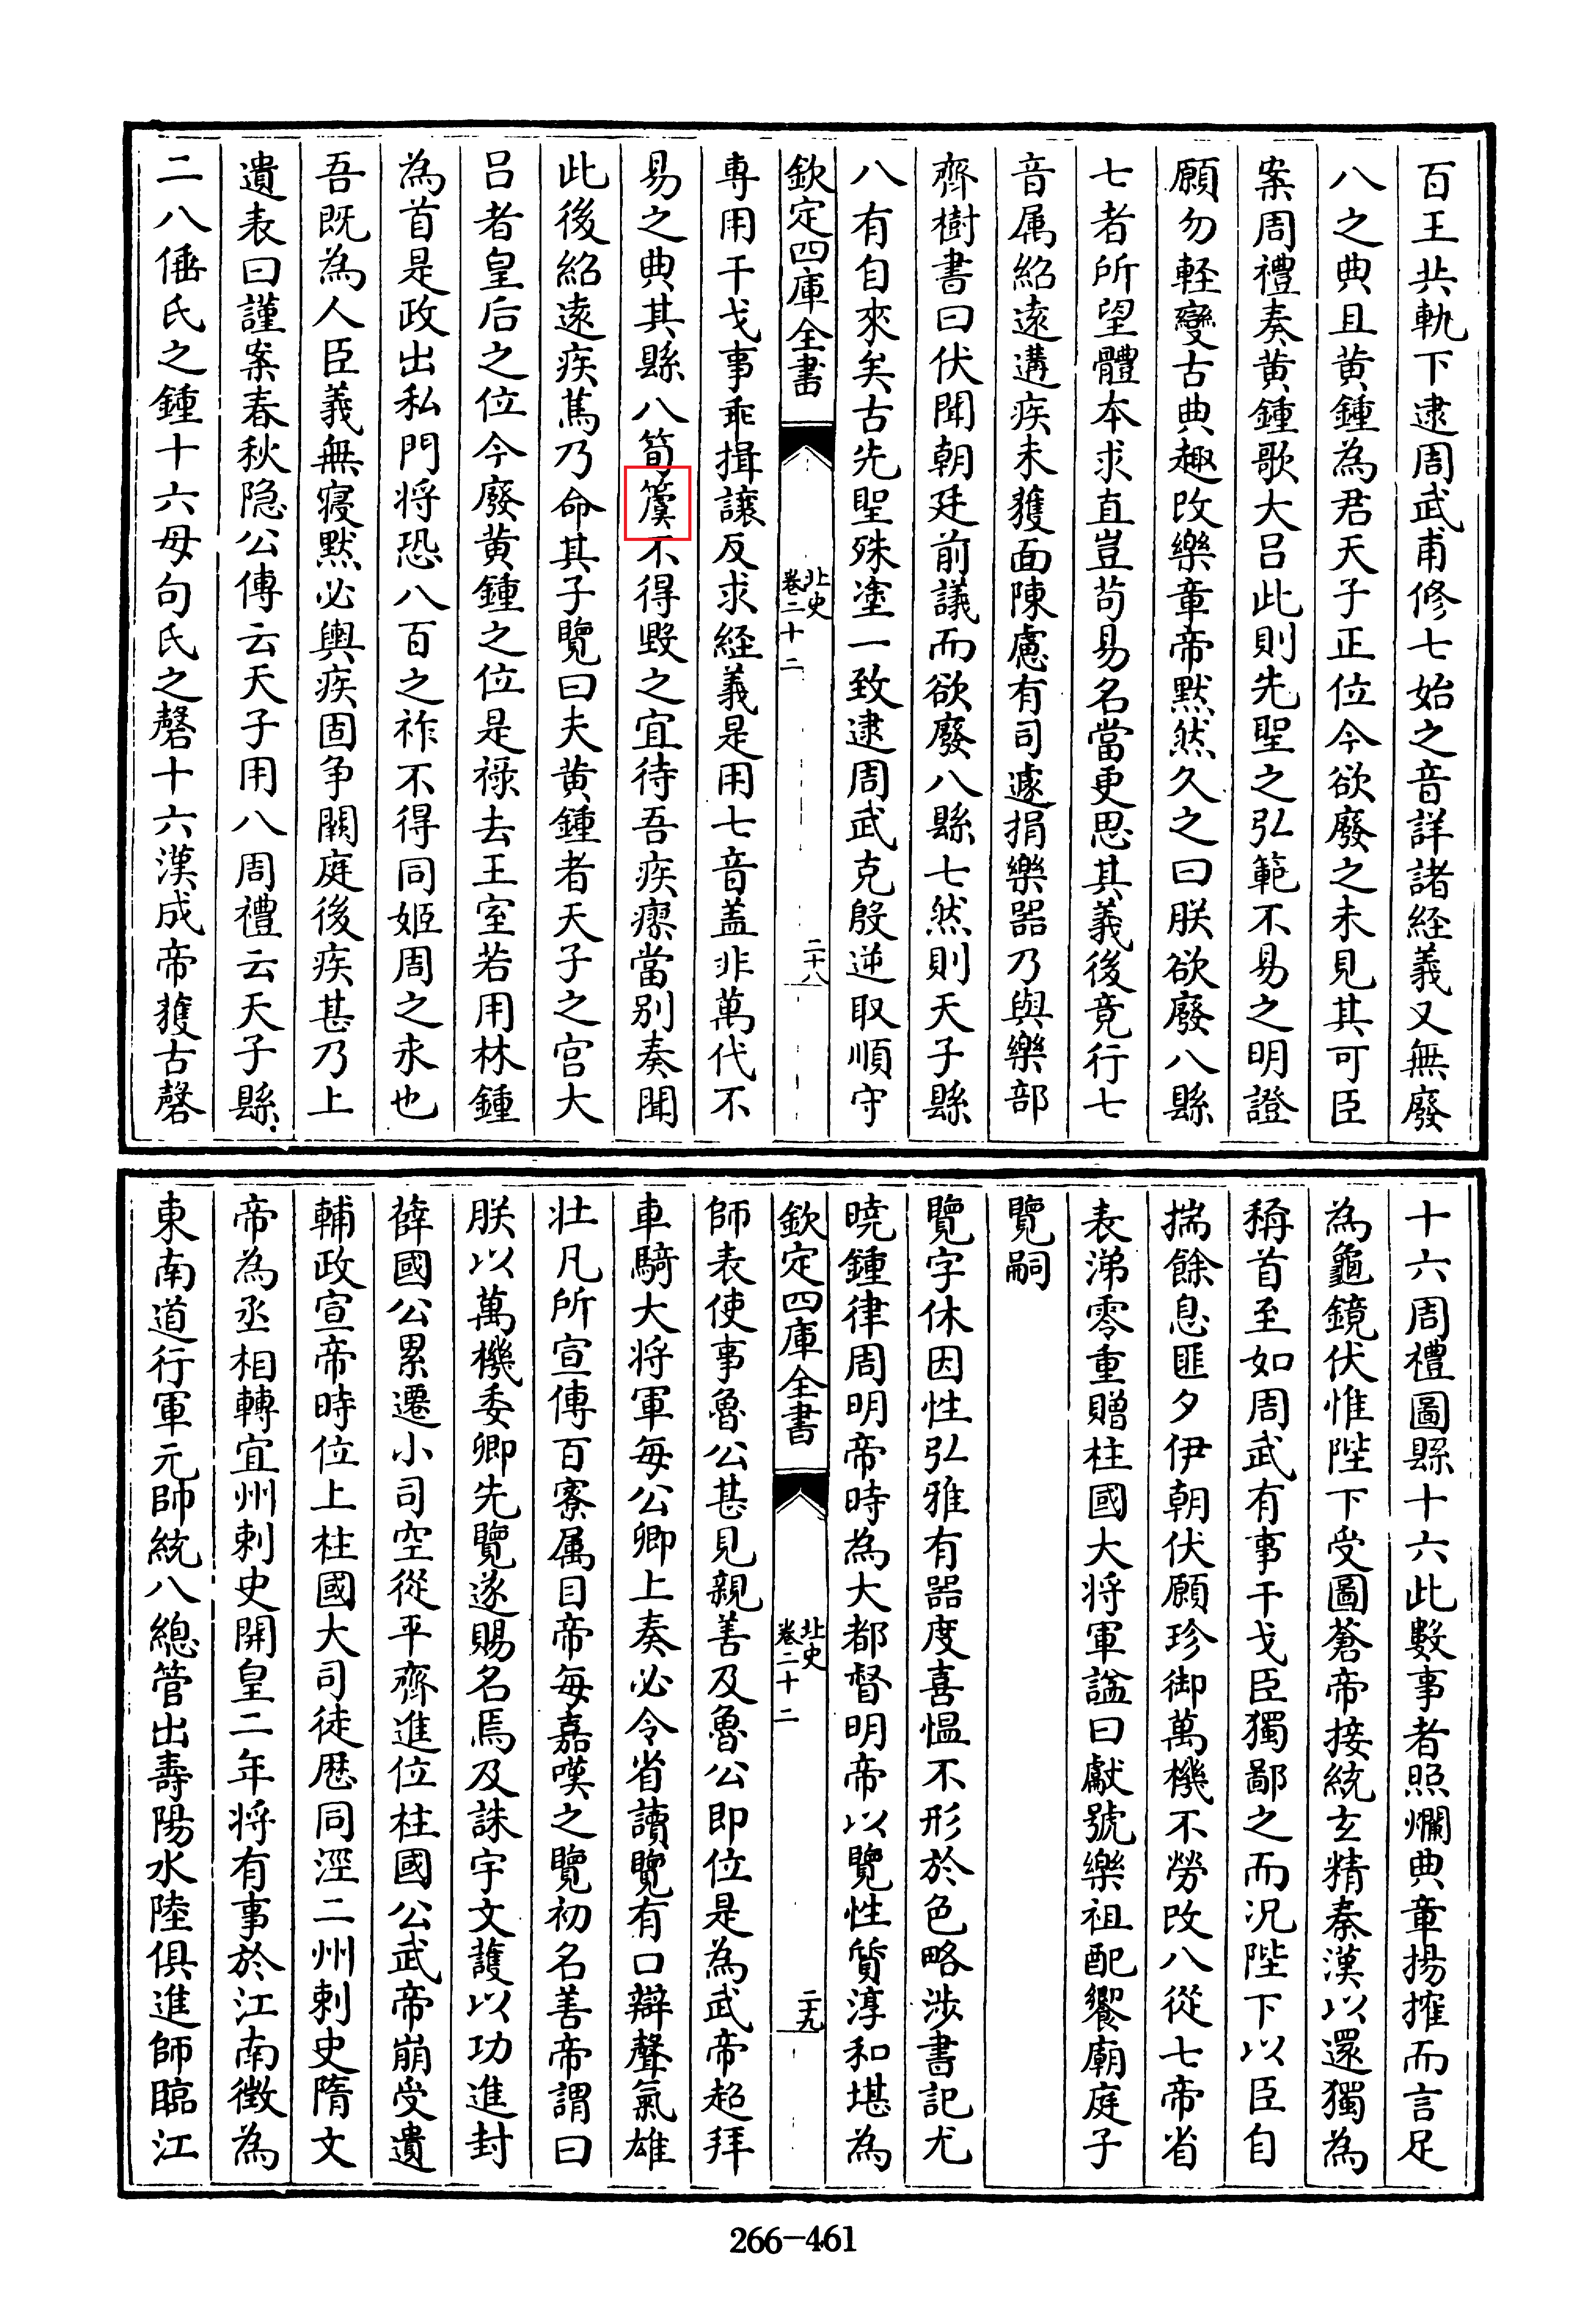 百王共軌下逮周武甫修七始之音詳諸経義又無廢
八之典且黄鍾為君天子正位今欲廢之未見其可臣
案周禮奏黄鍾歌大吕此則先聖之弘範不易之明證
願勿軽變古典趣改樂章帝黙然久之曰朕欲廢八縣
七者所望體本求直豈苟易名當更思其義後竟行七
音属紹逺遘疾未獲面陳慮有司遽捐樂器乃與樂部
齊樹書曰伏聞朝廷前議而欲廢八縣七然則天子縣
八有自來矣古先聖殊塗一致逮周武克殷逆取順守
欽定四庫全書
北史
卷二十二
二十八
専用干戈事乖揖讓反求経義是用七音盖非萬代不
易之典其縣八筍簴不得毀之宜待吾疾瘳當别奏聞
此後紹逺疾篤乃命其子覽曰夫黄鍾者天子之宫大
吕者皇后之位今廢黄鍾之位是禄去王室若用林鍾
為首是政出私門将恐八百之祚不得同姬周之永也
吾既為人臣義無寝黙必輿疾固争闕庭後疾甚乃上
遺表曰謹案春秋隐公傳云天子用八周禮云天子縣
二八倕氏之鍾十六母句氏之磬十六漢成帝獲古磬
十六周禮圖縣十六此數事者照爛典章揚搉而言足
為龜鏡伏惟陛下受圖蒼帝接統玄精秦漢以還獨為
稱首至如周武有事干戈臣獨鄙之而况陛下以臣自
揣餘息匪夕伊朝伏願珍御萬機不勞改八從七帝省
表涕零重贈柱國大将軍諡曰獻號樂祖配饗廟庭子
覽嗣
覽字休因性弘雅有器度喜愠不形於色略涉書記尤
曉鍾律周明帝時為大都督明帝以覽性質淳和堪為
欽定四庫全書
北史
卷二十二
二十九
師表使事魯公甚見親善及魯公即位是為武帝超拜
車騎大将軍毎公卿上奏必令省讀覽有口辯聲氣雄
壮凡所宣傳百寮属目帝每嘉嘆之覽初名善帝謂曰
朕以萬機委卿先覽遂賜名焉及誅宇文護以功進封
薛國公累遷小司空從平齊進位柱國公武帝崩受遺
輔政宣帝時位上柱國大司徒歴同涇二州刺史隋文
帝為丞相轉宜州刺史開皇二年将有事於江南徴為
東南道行軍元帥統八總管出夀陽水陸俱進師臨江
266-461